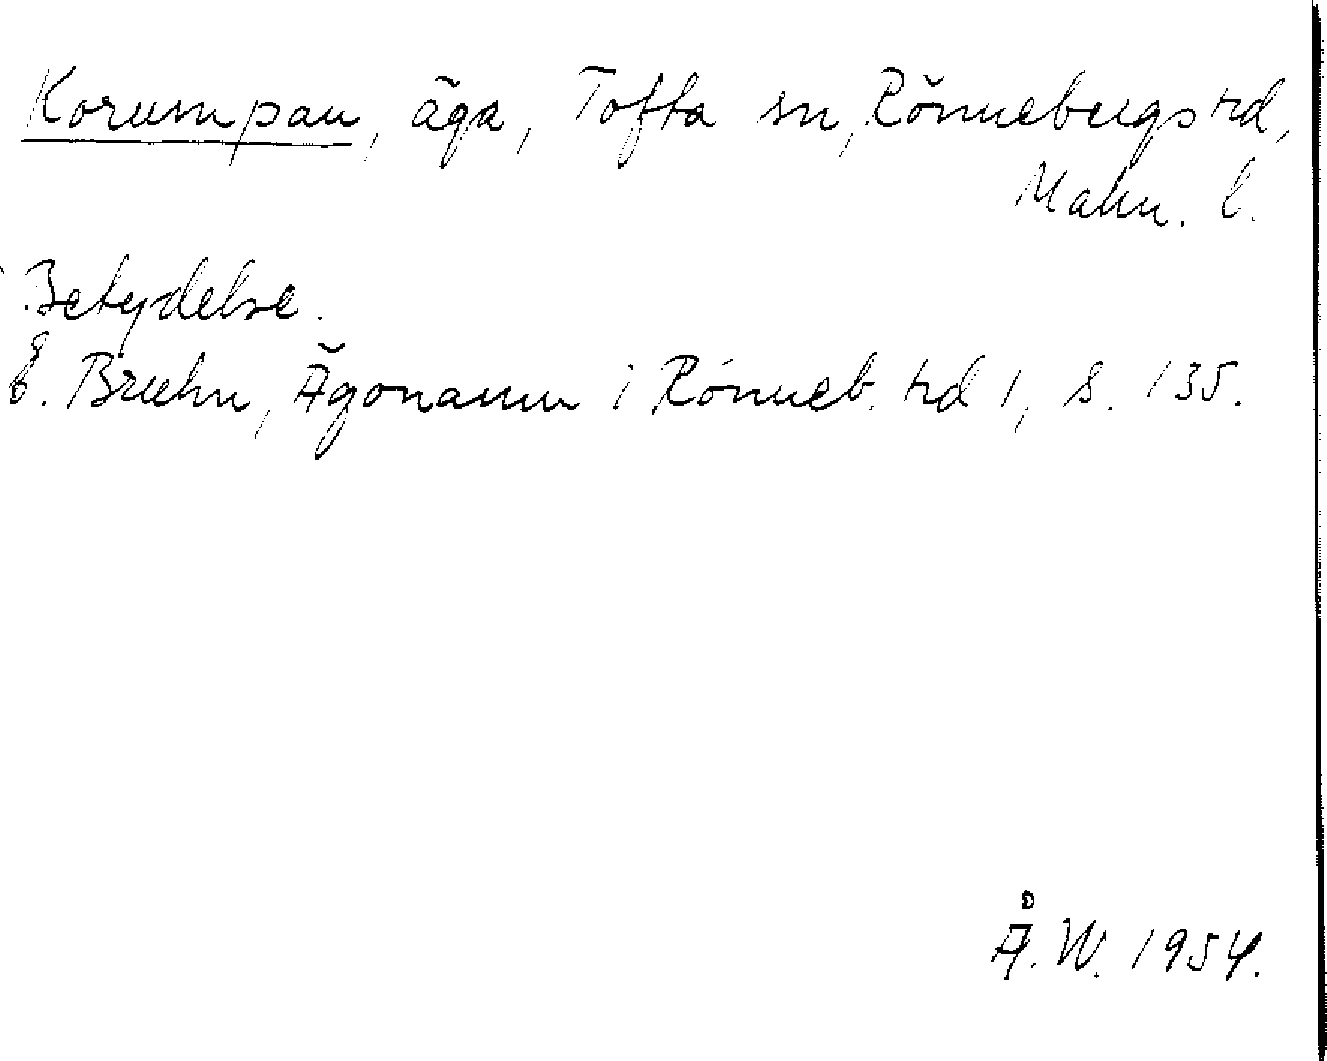 Korumpan, äga, Tofta sn, Rönnebergs hd,
Malm. l.
Betydelse.
E. Bruhn, Ägonamn i Rönneb. hd 1, s. 135.
Å. W. 1954.